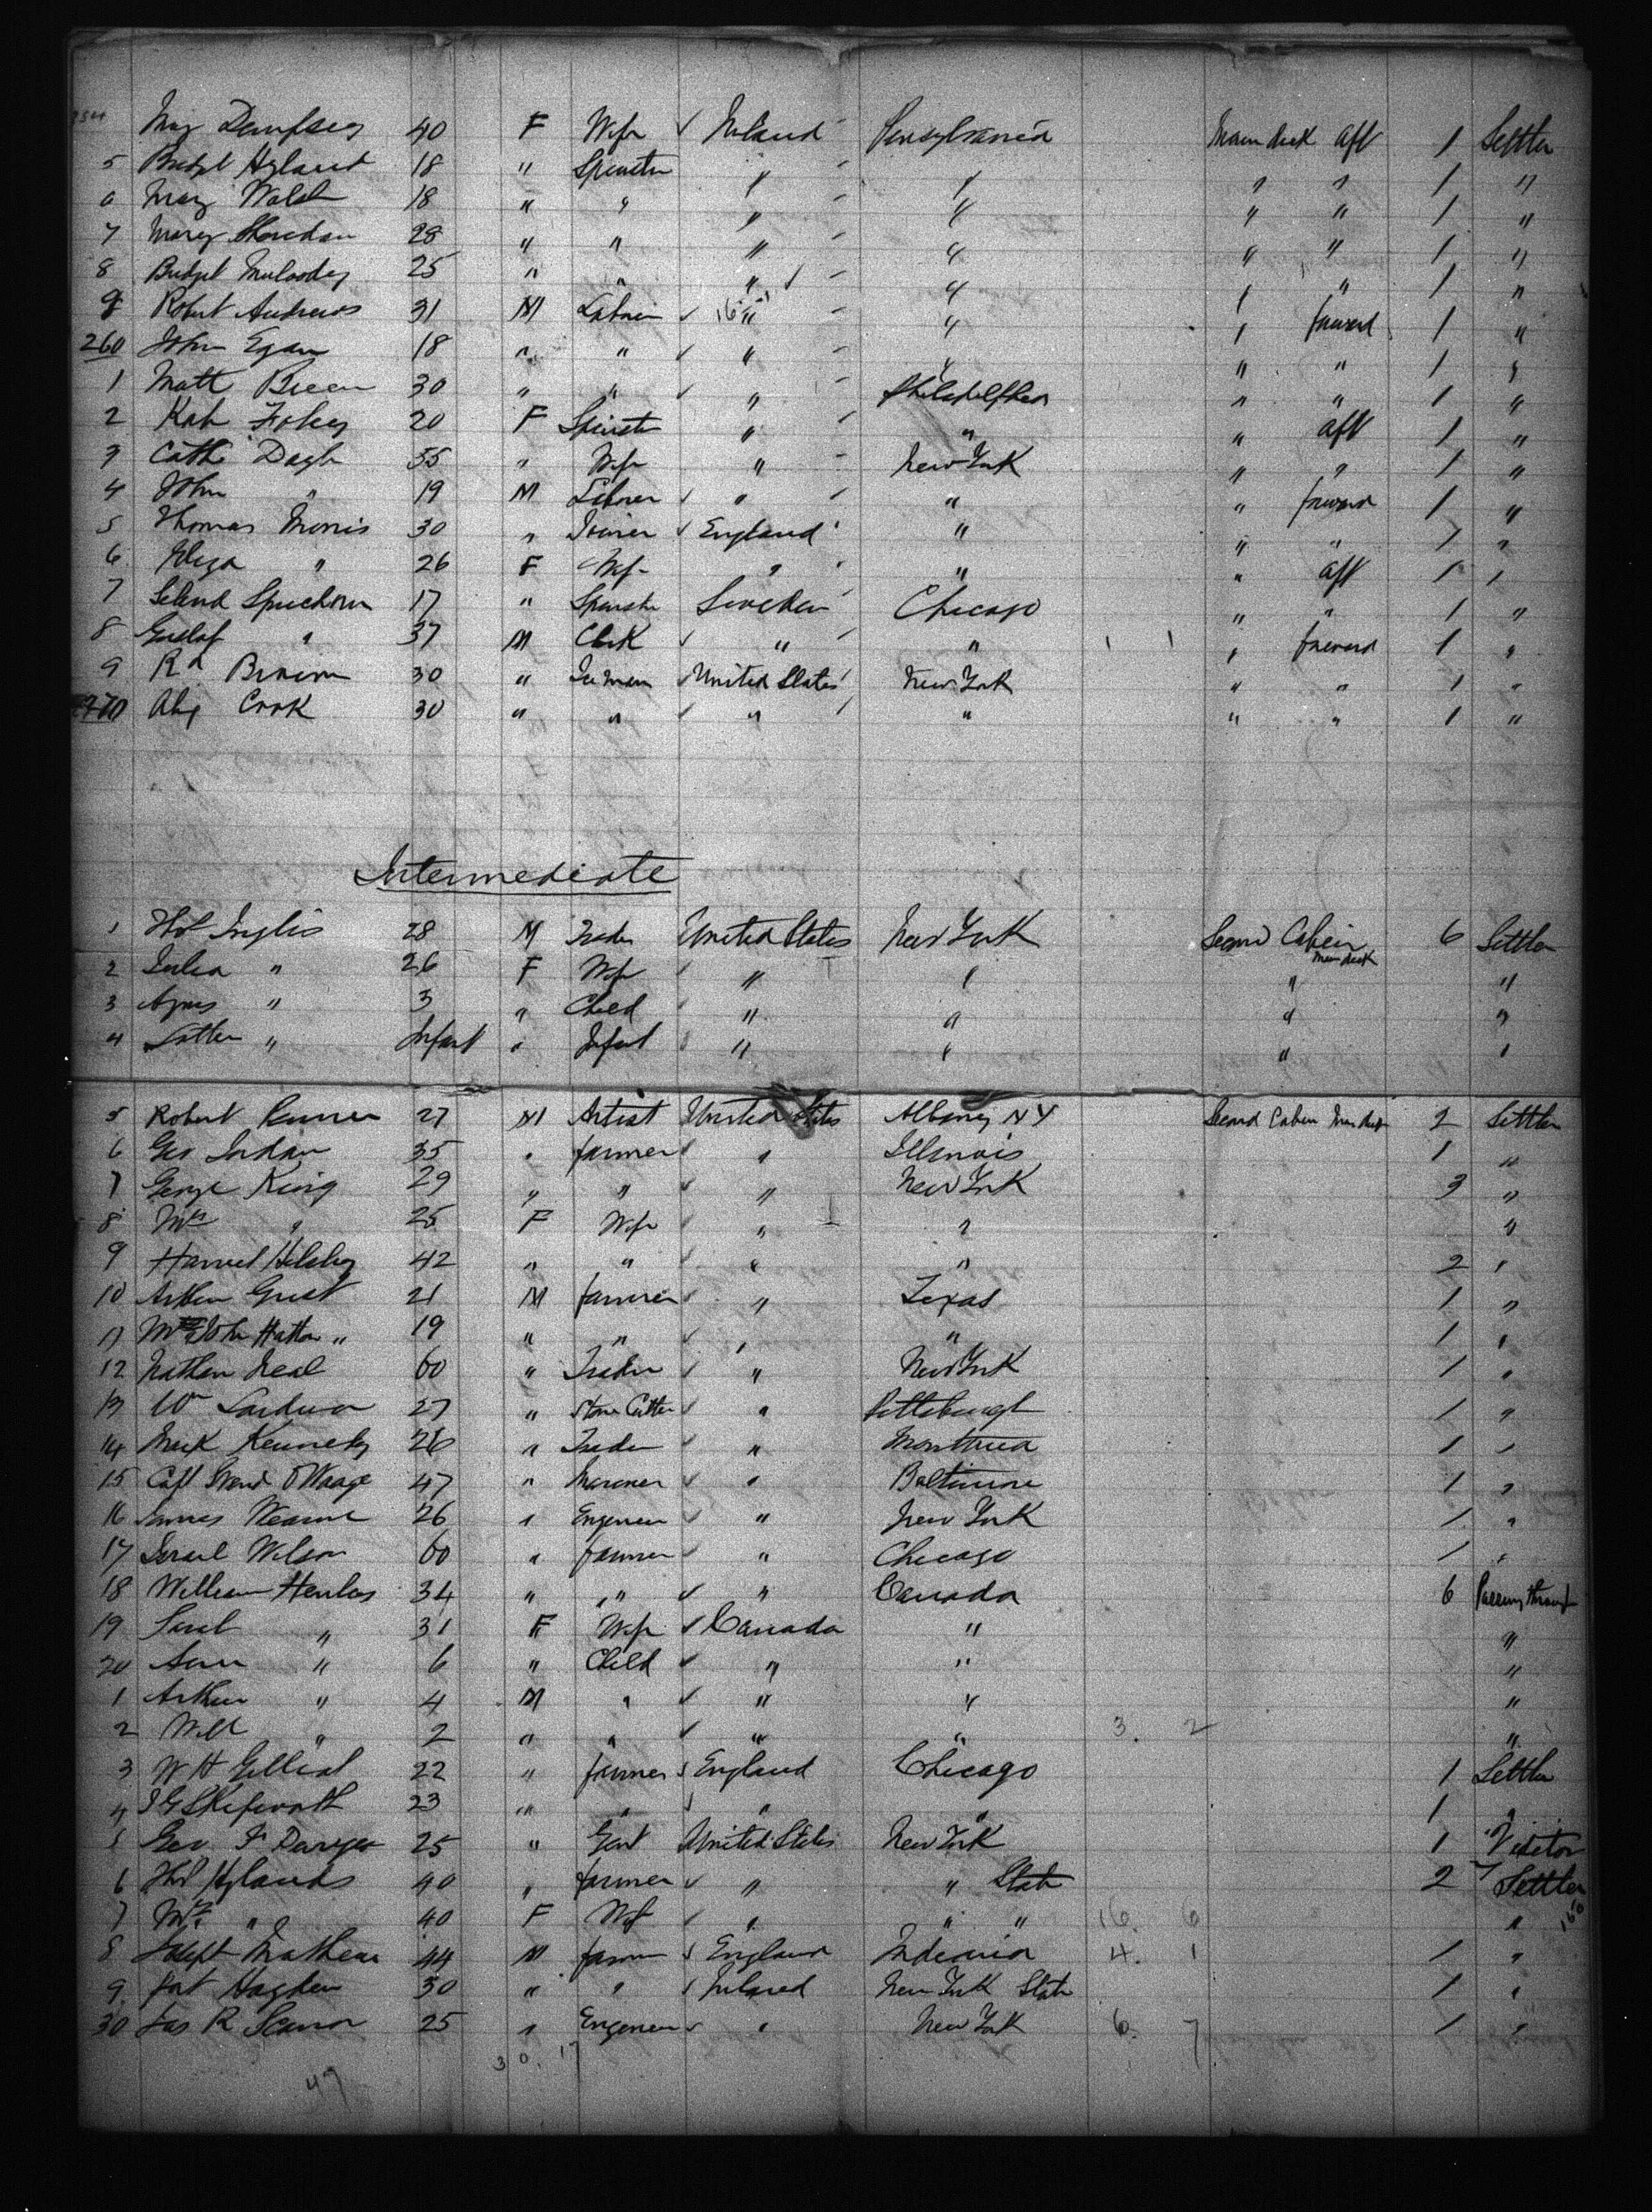 254 Mary Dempsey 40 F Wife ✓ Ireland Pensylvania Main deck aft 1 Settler
5 Bridget Hyland 18 " Spinster " " " " 1 "
6 Mary Walsh 18 " " " " " " 1 "
7 Mary Sheridan 28 " " " " " " 1 "
8 Bridget 25 " " " " " " 1 "
9 Robert Andrews 31 M Laborer ✓ " " " forward 1 "
260 John Egan 18 " " ✓ " " " " 1 "
1 Matt Breen 30 " " ✓ " Philadelphia " " 1 "
2 Kate Foley 20 F Spinster " " " aft 1 "
3 Cath Doyle 55 " Wife " New York " " 1 "
4 John " 19 M Laborer ✓ " " " forward 1 "
5 Thomas Morris 30 " Joiner ✓ England " " " 1 "
6 Eliza " 26 F Wife " " " aft 1 "
7 17 " Spinster Sweden Chicago " " 1 "
8 Gustaf " 37 M Clerk ✓ " " 1 1 " forward 1 "
9 Rd Brown 30 " ✓ United States New York " " 1 "
270 Cook 30 " " ✓ " " " " 1 "
Intermediate
1 Thos Inglis 28 M Trader United States New York Second Cabin Main deck 6 Settler
2 Julia " 26 F Wife ✓ " " " "
3 Agnes " 3 " Child ✓ " " " "
4 " Infant " Infant " " " "
5 Robert 27 M Artist United States Albany NY Second Cabin Main deck 2 Settler
6 Geo Jordan 35 " farmer ✓ " Illinois 1 "
7 George King 29 " " ✓ " New York 3 "
8 Mrs " 25 F Wife ✓ " " "
9 42 " " ✓ " " 2 "
10 Arthur 21 M farmer ✓ " Texas 1 "
11 John Hatton " 19 " " ✓ " " 1 "
12 Nathan Neal 60 " Trader ✓ " New York 1 "
13 Wm 27 " Stone Cutter ✓ " Pittsburgh 1 "
14 Kennedy 26 " Trader ✓ " 1 "
15 Capt 47 " Mariner ✓ " Baltimore 1 "
16 James 26 " Engineer ✓ " New York 1 "
17 Wilson 60 " farmer ✓ " Chicago 1 "
18 William 34 " " ✓ " Canada 6 Passing through
19 Sarah " 31 F Wife ✓ Canada " "
20 " 6 " Child ✓ " " "
1 Arthur " 4 M " ✓ " " "
2 Will " 2 " " ✓ " " 3. 2 "
3 W H 22 " farmer ✓ England Chicago 1 Settler
4 J G Skipworth 23 " " ✓ " " 1 "
5 Geo 25 " Gent United States New York 1 Visitor
6 Thos Hylands 40 " farmer ✓ " " State 2 Settler
7 Mrs " 40 F Wife ✓ " " " 16. 6 "
8 Joseph Mathews 44 M farmer ✓ England Indiana 4. 1 1 "
9 Pat Hogden 30 " " ✓ Ireland New York State 1 "
30 Jas R 25 " Engineer ✓ " New York 6. 7 1 "
30. 17
47